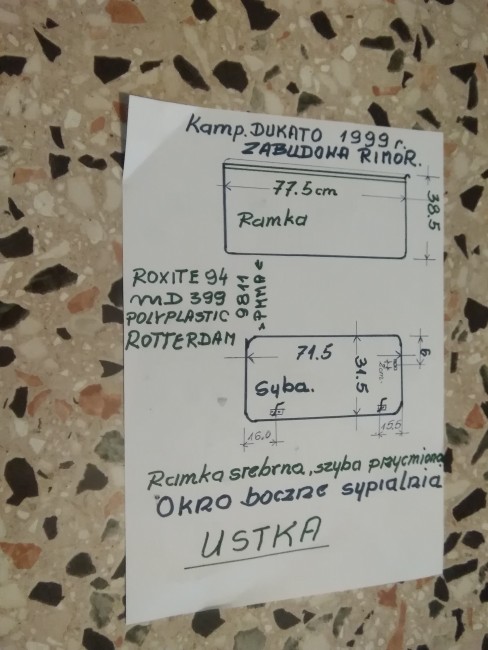 Kamp. DUKATO 1999 r.
ZABUDOWA RIMOR.
77.5 cm
38.5
Ramka
ROXITE 94
MD 399
POLYPLASTIC
ROTTERDAM
9811
>PMMA<
71.5
31.5
6
2cm.
Syba.
16.0
15.5
Ramka srebrna, szyba przyciemiona
OKNO boczne sypialnia
USTKA